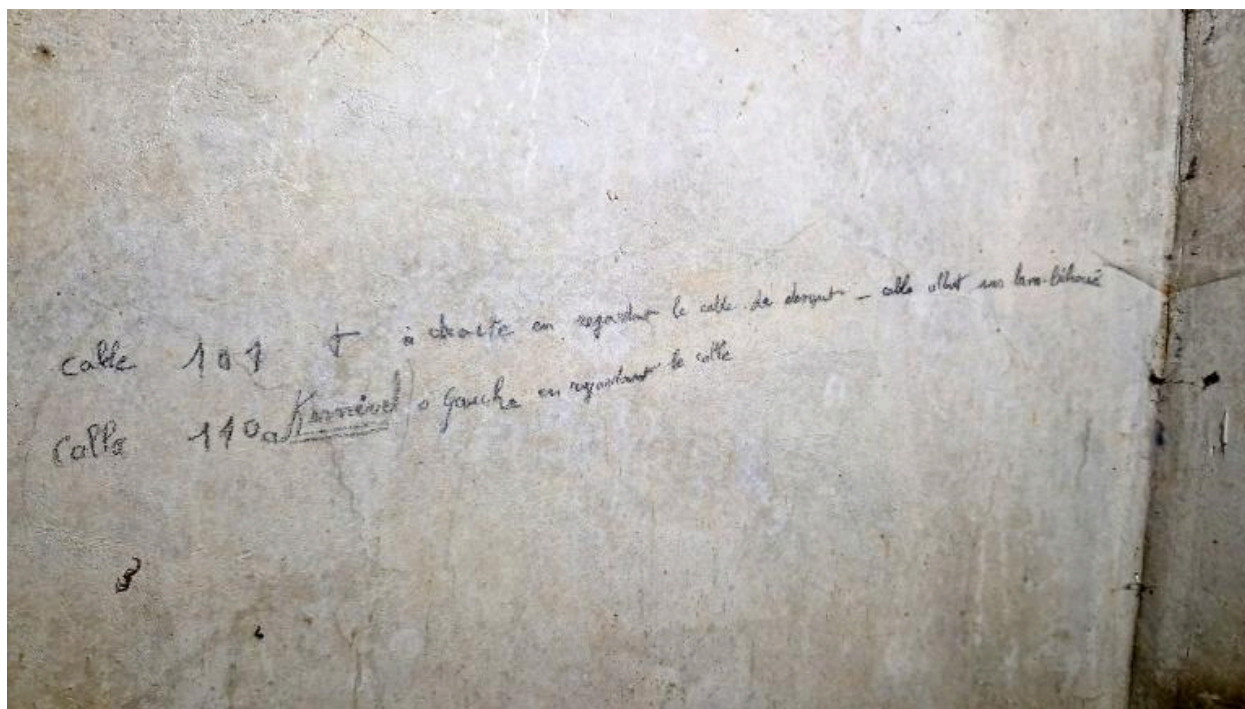 cable 101 à droite en regardant le cable de devant - cable allant sur lann-bihoué
cable 140 Kernével à Gauche en regardant le cable